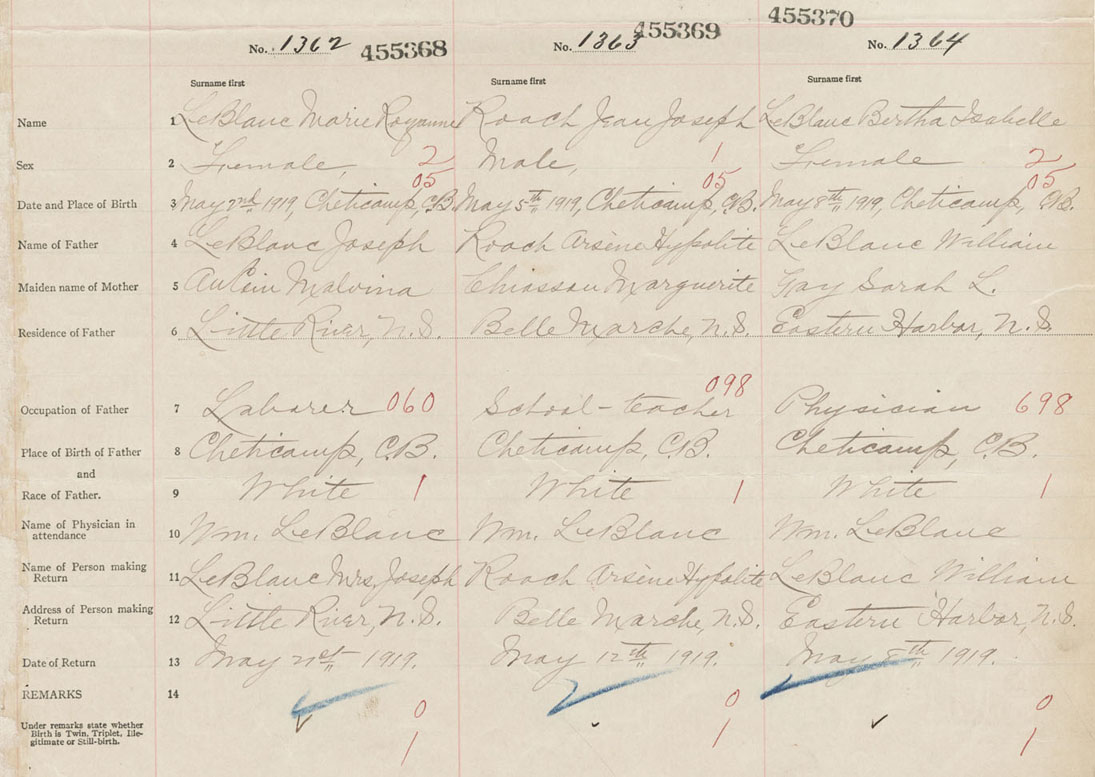 No. 1362 455368 No. 1363 455369 No. 1364 455370
Surname first Surname first Surname first
Name 1 LeBlanc Marie Royanne Roach Jean Joseph LeBlanc Bertha Isabelle
Sex 2 Female, 2 Male, 1 Female 2
05 05 05
Date and Place of Birth 3 May 2nd 1919, Cheticamp, C.B. May 5th 1919, Cheticamp, C.B. May 8th 1919, Cheticamp, C.B.
Name of Father 4 LeBlanc Joseph Roach Arsène Hypolite LeBlanc William
Maiden name of Mother 5 AuCoin Malvina Chiasson Marguerite Gay Sarah L.
Residence of Father 6 Little River, N.S. Belle Marche, N.S. Eastern Harbor, N.S.
Occupation of Father 7 Laborer 060 School-teacher 098 Physician 698
Place of Birth of Father 8 Cheticamp, C.B. Cheticamp, C.B. Cheticamp, C.B.
and
Race of Father. 9 White 1 White 1 White 1
Name of Physician in
attendance 10 Wm. LeBlanc Wm. LeBlanc Wm. LeBlanc
Name of Person making
Return 11 LeBlanc Mrs. Joseph Roach Arsène Hypolite LeBlanc William
Address of Person making
Return 12 Little River, N.S. Belle Marche, N.S. Eastern Harbor, N.S.
Date of Return 13 May 1919. May 12th 1919. May 8th 1919.
REMARKS 14
0 0 0
Under remarks state whether
Birth is Twin, Triplet, Ille-
gitimate or Still-birth.
1 1 1